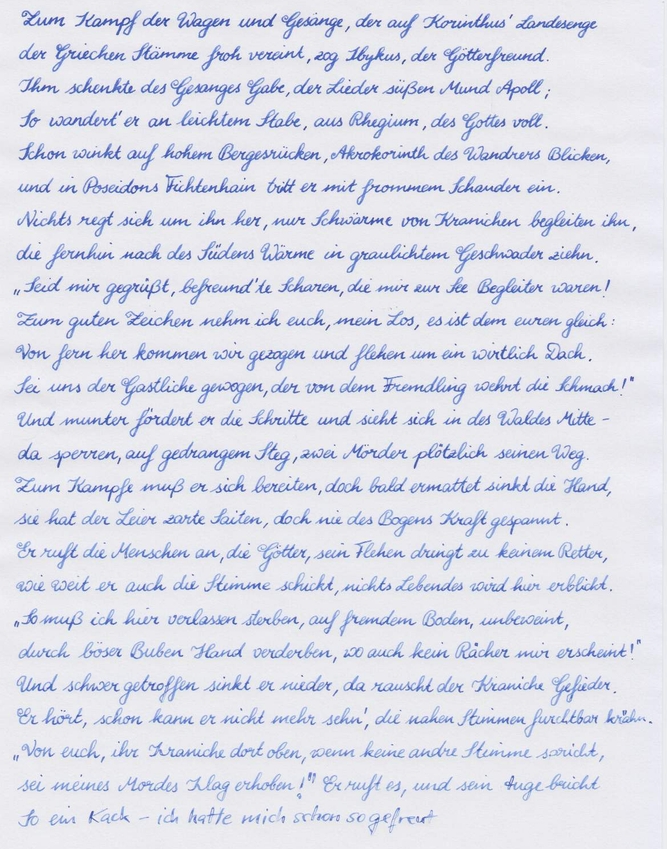 Zum Kampf der Wagen und Gesänge, der auf Korinthus' Landesenge
der Griechen Stämme froh vereint, zog Ibykus, der Götterfreund.
Ihm schenkte des Gesanges Gabe, der Lieder süßen Mund Apoll;
So wandert' er an leichtem Stabe, aus Rhegium, des Gottes voll.
Schon winkt auf hohem Bergesrücken, Akrokorinth des Wandrers Blicken,
und in Poseidons Fichtenhain tritt er mit frommem Schauder ein.
Nichts regt sich um ihn her, nur Schwärme von Kranichen begleiten ihn,
die fernhin nach des Südens Wärme in graulichtem Geschwader ziehn.
„Seid mir gegrüßt, befreund'te Scharen, die mir zur See Begleiter waren!
Zum guten Zeichen nehm ich euch, mein Los, es ist dem euren gleich:
Von fern her kommen wir gezogen und flehen um ein wirtlich Dach.
Sei uns der Gastliche gewogen, der von dem Fremdling wehrt die Schmach!"
Und munter fördert er die Schritte und sieht sich in des Waldes Mitte –
da sperren, auf gedrangem Steg, zwei Mörder plötzlich seinen Weg.
Zum Kampfe muß er sich bereiten, doch bald ermattet sinkt die Hand,
sie hat der Leier zarte Saiten, doch nie des Bogens Kraft gespannt.
Er ruft die Menschen an, die Götter, sein Flehen dringt zu keinem Retter,
wie weit er auch die Stimme schickt, nichts Lebendes wird hier erblickt.
„So muß ich hier verlassen sterben, auf fremdem Boden, unbeweint,
durch böser Buben Hand verderben, wo auch kein Rächer mir erscheint!"
Und schwer getroffen sinkt er nieder, da rauscht der Kraniche Gefieder.
Er hört, schon kann er nicht mehr sehn', die nahen Stimmen furchtbar krähn.
„Von euch, ihr Kraniche dort oben, wenn keine andre Stimme spricht,
sei meines Mordes Klag erhoben!" Er ruft es, und sein Auge bricht
So ein Kack – ich hatte mich schon so gefreut